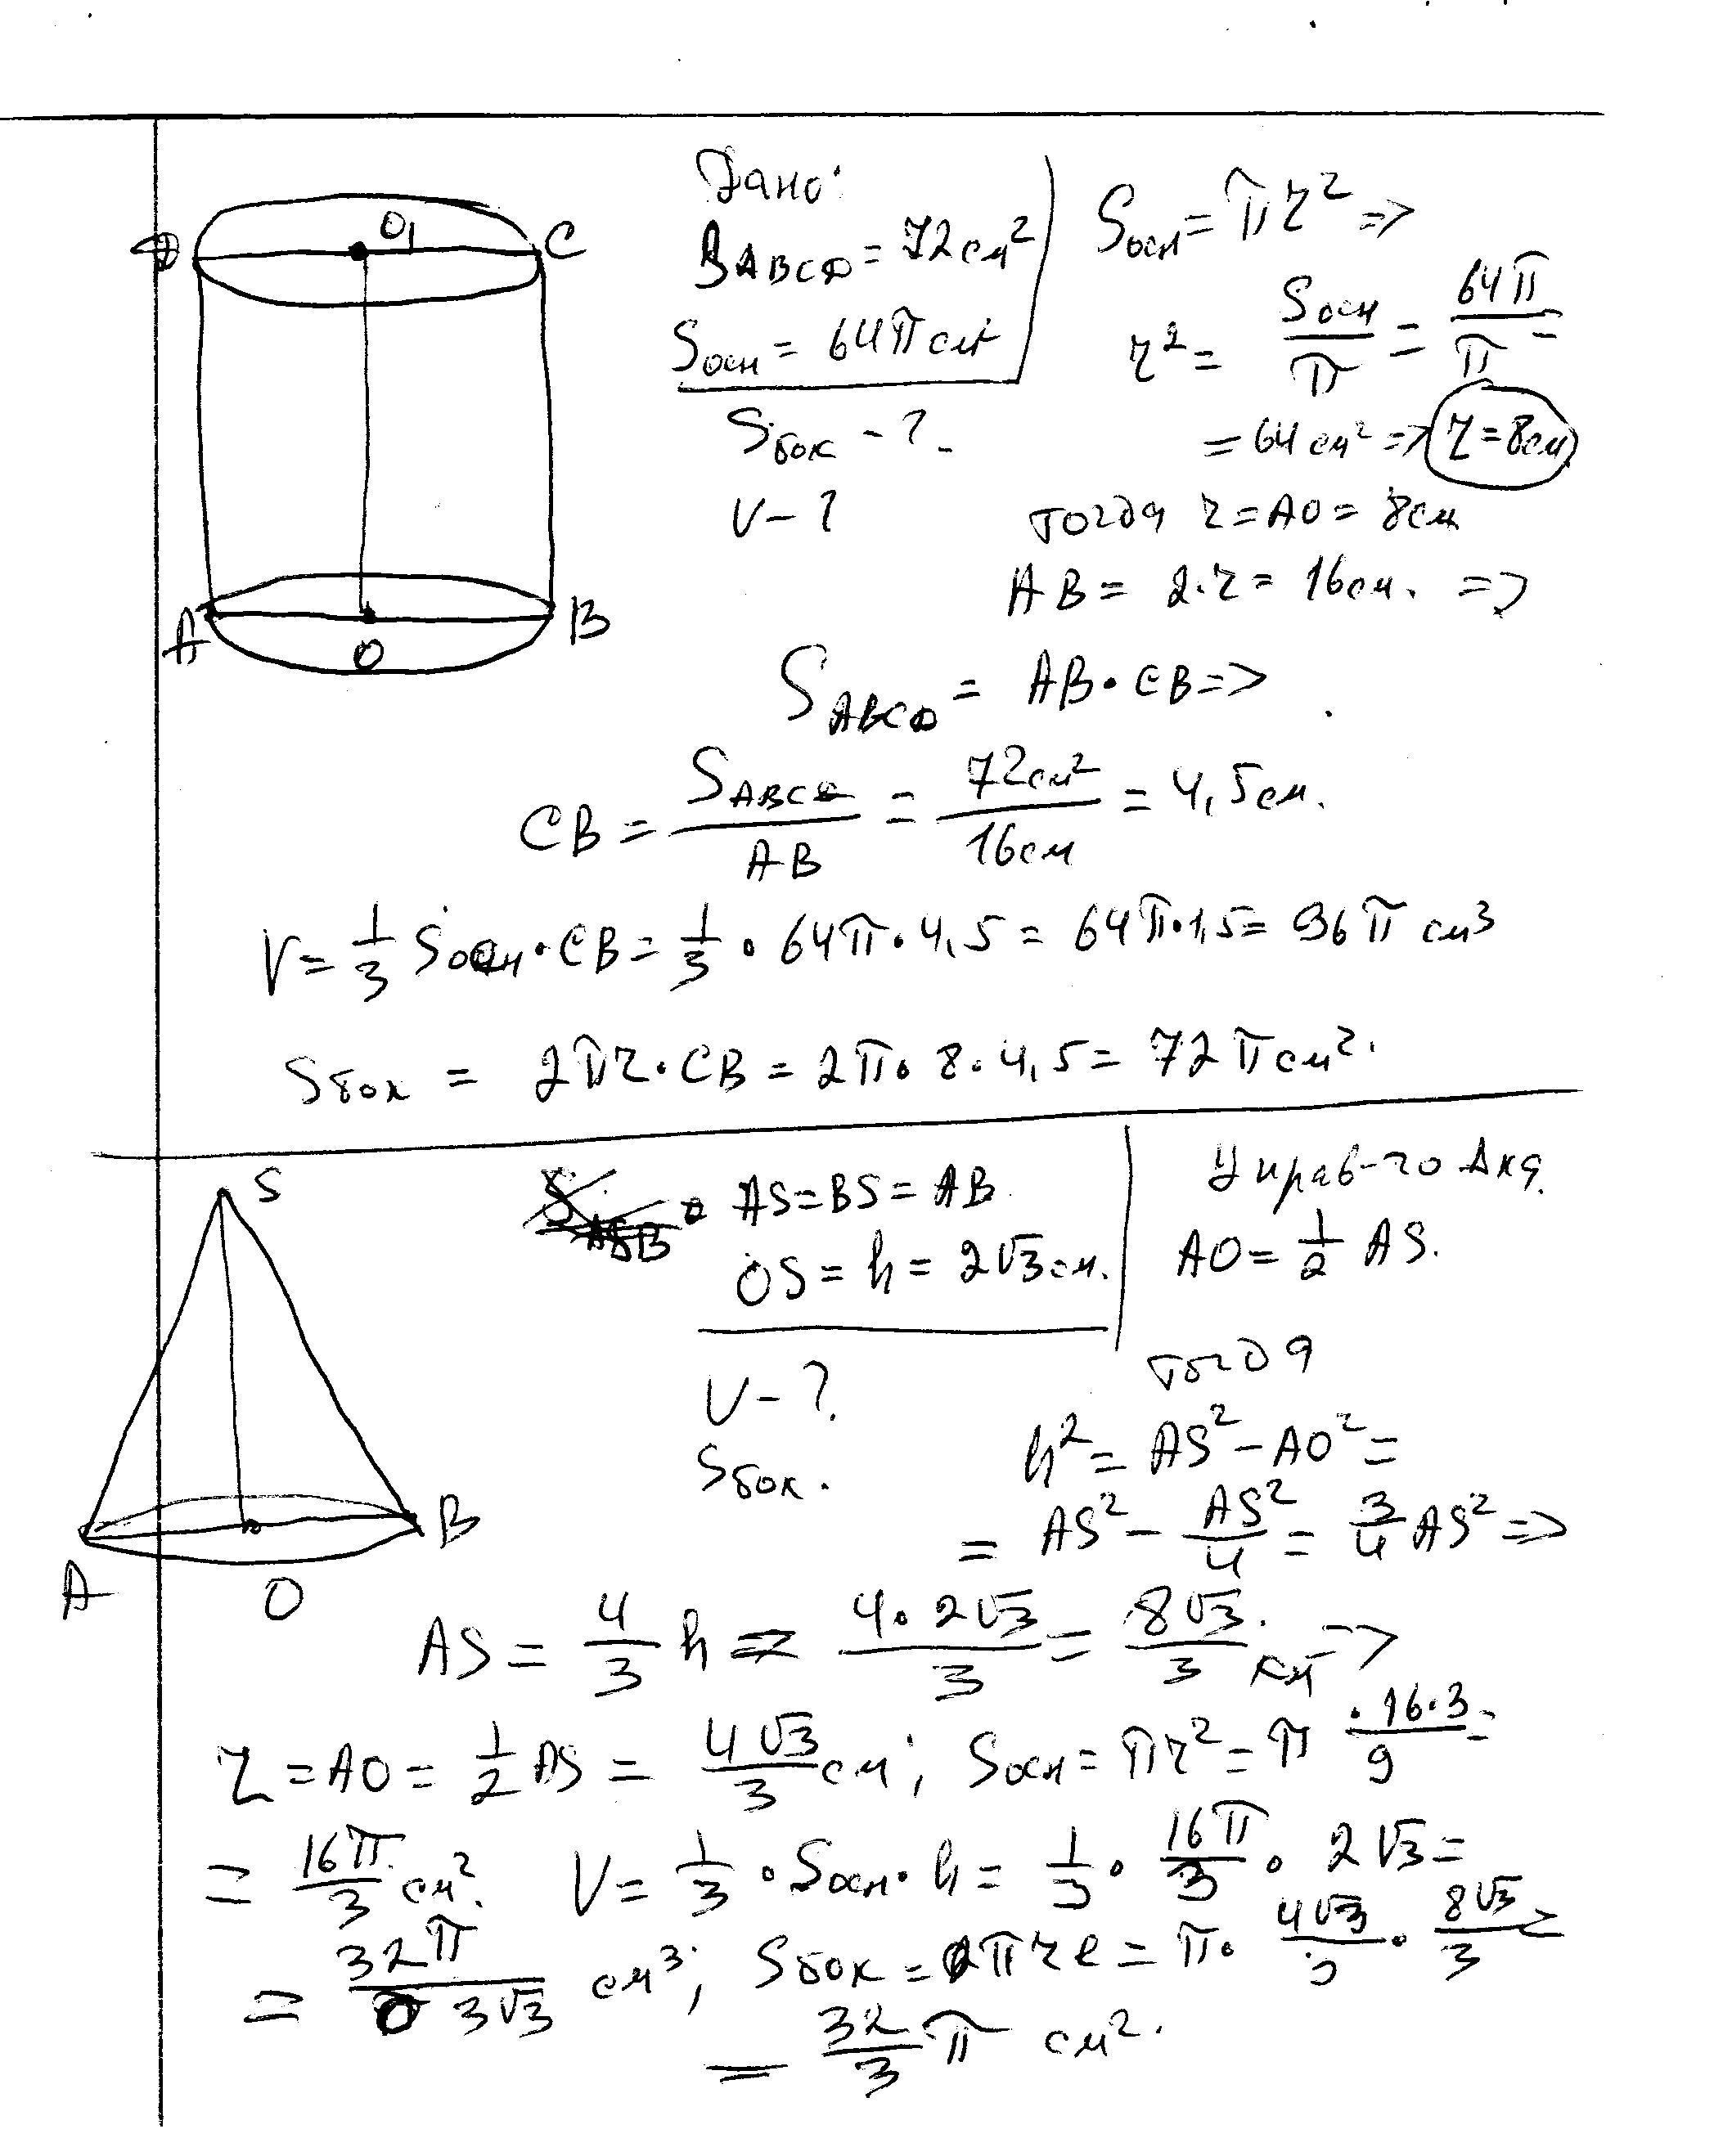 D O₁ C
A O B
Дано:
S_ABCD = 72 см²
S_осн = 64π см²
S_бок - ?
V - ?
S_осн = πr² =>
r² = S_осн/π = 64π/π =
= 64 см² => r = 8см
тогда r = AO = 8см
AB = 2·r = 16см. =>
S_ABCD = AB·CB =>
CB = S_ABCD/AB = 72см²/16см = 4,5см.
V = 1/3 S_осн·CB = 1/3 · 64π·4,5 = 64π·1,5 = 96π см³
S_бок = 2πr·CB = 2π·8·4,5 = 72π см².
S
A O B
AS = BS = AB
OS = h = 2√3 см.
V - ?
S_бок.
AO = 1/2 AS.
тогда
h² = AS² - AO² =
= AS² - AS²/4 = 3/4 AS² =>
AS = 4/3 h = 4·2√3/3 = 8√3/3 см =>
r = AO = 1/2 AS = 4√3/3 см; S_осн = πr² = π ·16·3/9 =
= 16π/3 см². V = 1/3 · S_осн · h = 1/3 · 16π/3 · 2√3 =
= 32π/3√3 см³; S_бок = πrl = π · 4√3/3 · 8√3/3 =
= 32/3 π см².